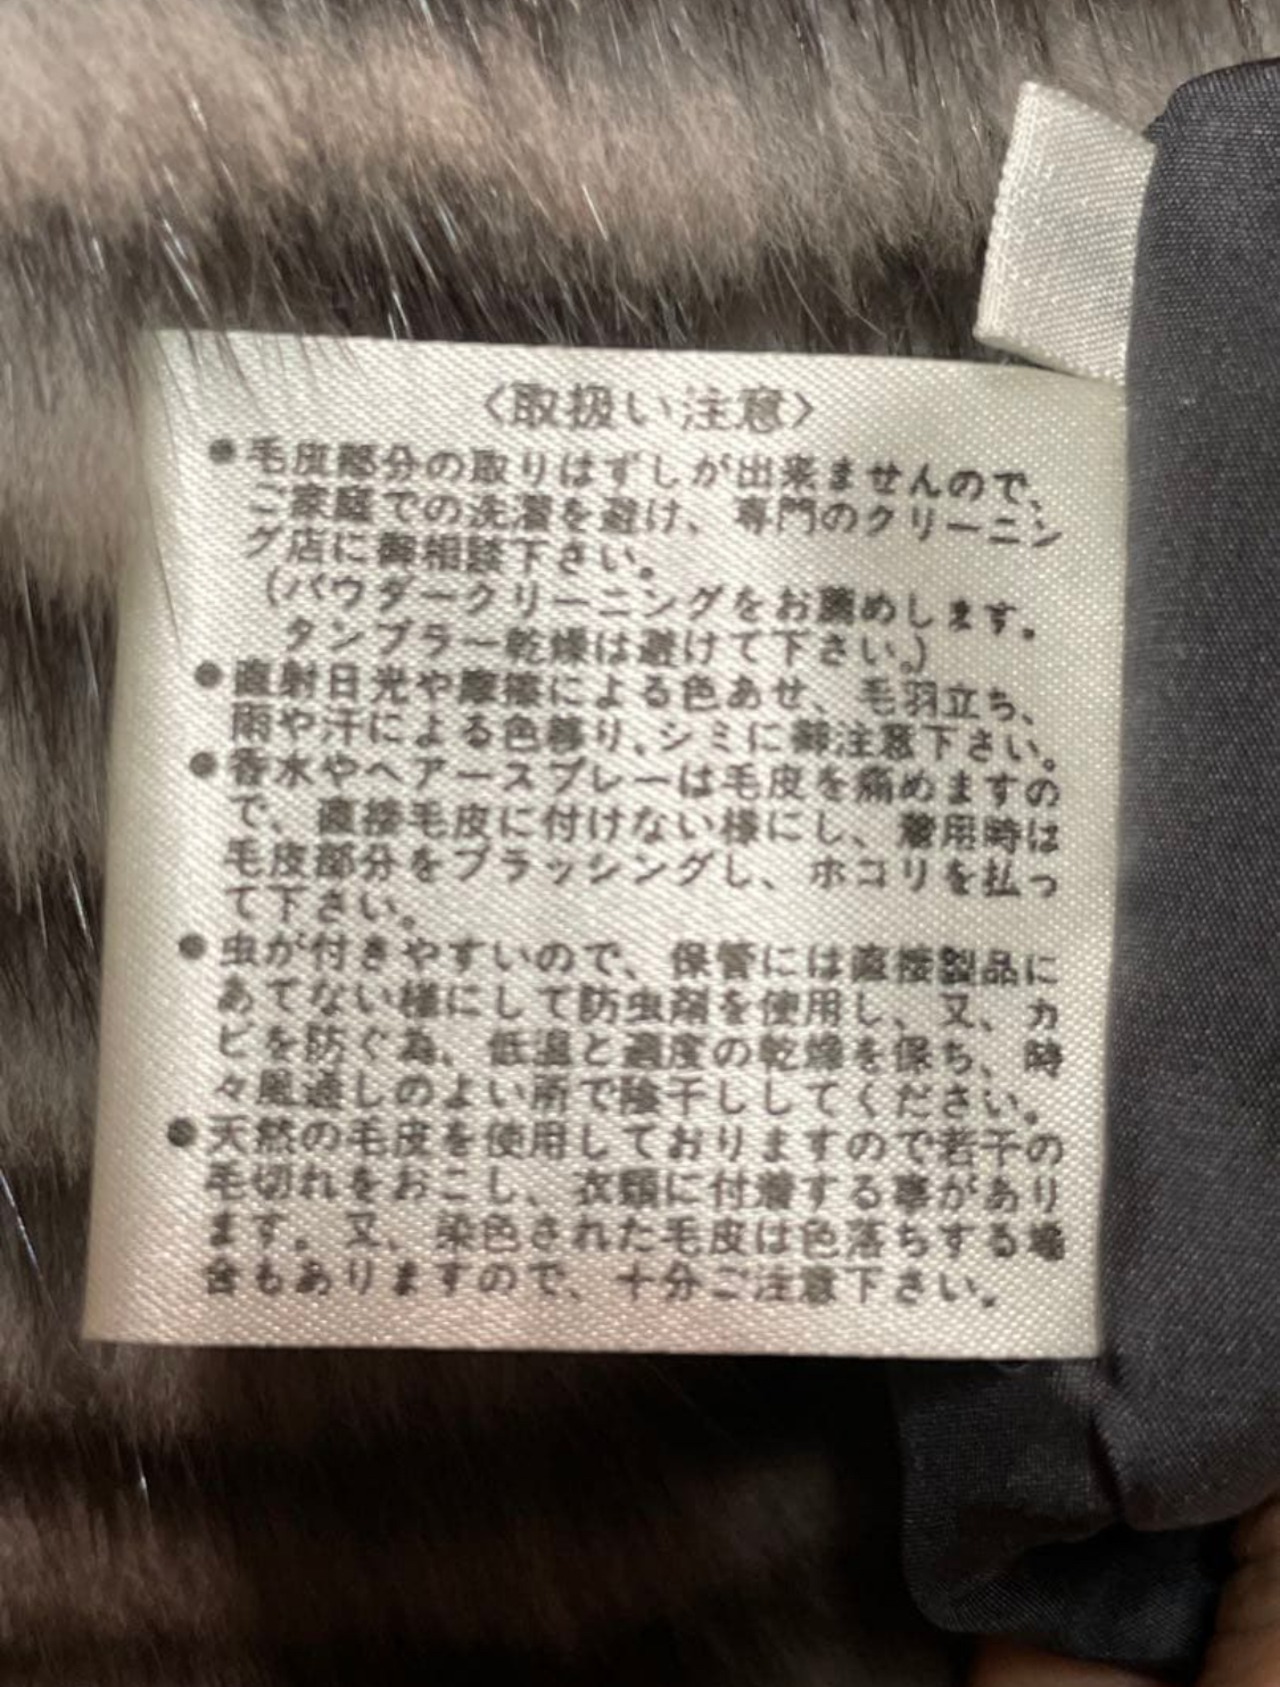 〈取扱い注意〉
●毛皮部分の取りはずしが出来ませんので、
ご家庭での洗濯を避け、専門のクリーニン
グ店に御相談下さい。
(パウダークリーニングをお薦めします。
タンブラー乾燥は避けて下さい。)
●直射日光や摩擦による色あせ、毛羽立ち、
雨や汗による色移り、シミに御注意下さい。
●香水やヘアースプレーは毛皮を痛めますの
で、直接毛皮に付けない様にし、着用時は
毛皮部分をブラッシングし、ホコリを払っ
て下さい。
●虫が付きやすいので、保管には直接製品に
あてない様にして防虫剤を使用し、又、カ
ビを防ぐ為、低温と適度の乾燥を保ち、時
々風通しのよい所で陰干ししてください。
●天然の毛皮を使用しておりますので若干の
毛切れをおこし、衣類に付着する事があり
ます。又、染色された毛皮は色落ちする場
合もありますので、十分ご注意下さい。